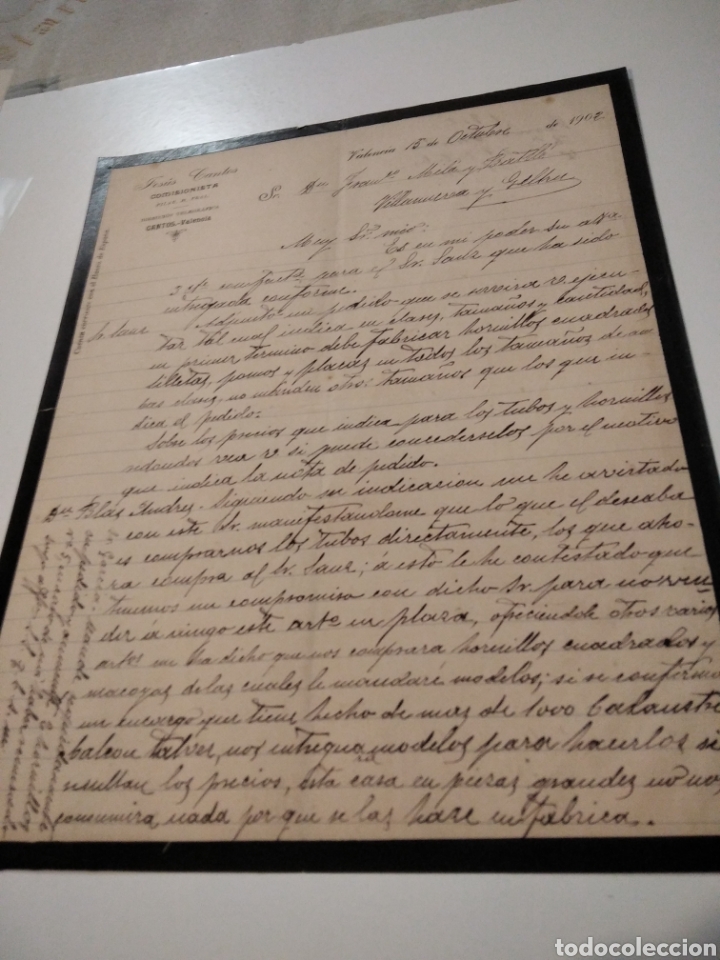 Jesús Cantos
COMISIONISTA
CANTOS.-Valencia
Valencia 15 de Octubre de 1902
S. Dn Franco. Mila y Batlle
Villanueva y Geltru
Muy Sr. mio:
Es en mi poder su
para el Sr. Sanz que ha sido
entregada conforme.
Sr Sanz
Adjunto mi pedido que se servira
tar tal cual indica en clases, tamaños y cantidad,
en primer termino debe fabricar hornillos cuadrados
pomos y placas en todos los tamaños de am
bas clases, no otros tamaños que los que in
dica el pedido.
Sobre los precios que indica para los tubos y hornillos
redondos vea si puede concederselos por el motivo
que indica la nota de pedido.
Dn Blás Andres. Siguiendo su indicacion me he avistado
con este Sr. manifestandome que lo que el deseaba
es comprarnos los tubos directamente, los que aho-
ra compra al Sr. Sanz; á esto le he contestado que
tenemos un compromiso con dicho Sr. para no ven-
der á ningo este arto en plaza, ofreciendole otros varios
artos me ha dicho que nos comprara hornillos cuadrados y
de las cuales le mandaré modelos; si se conforma
un encargo que tiene hecho de mas de 1000 balaustre
balcon talvez nos entregua modelos para hacerlos si
resultan los precios, esta casa en piezas grandes no nos
consumira nada por que se las hace en fabrica.
todocoleccion
todocoleccion.net